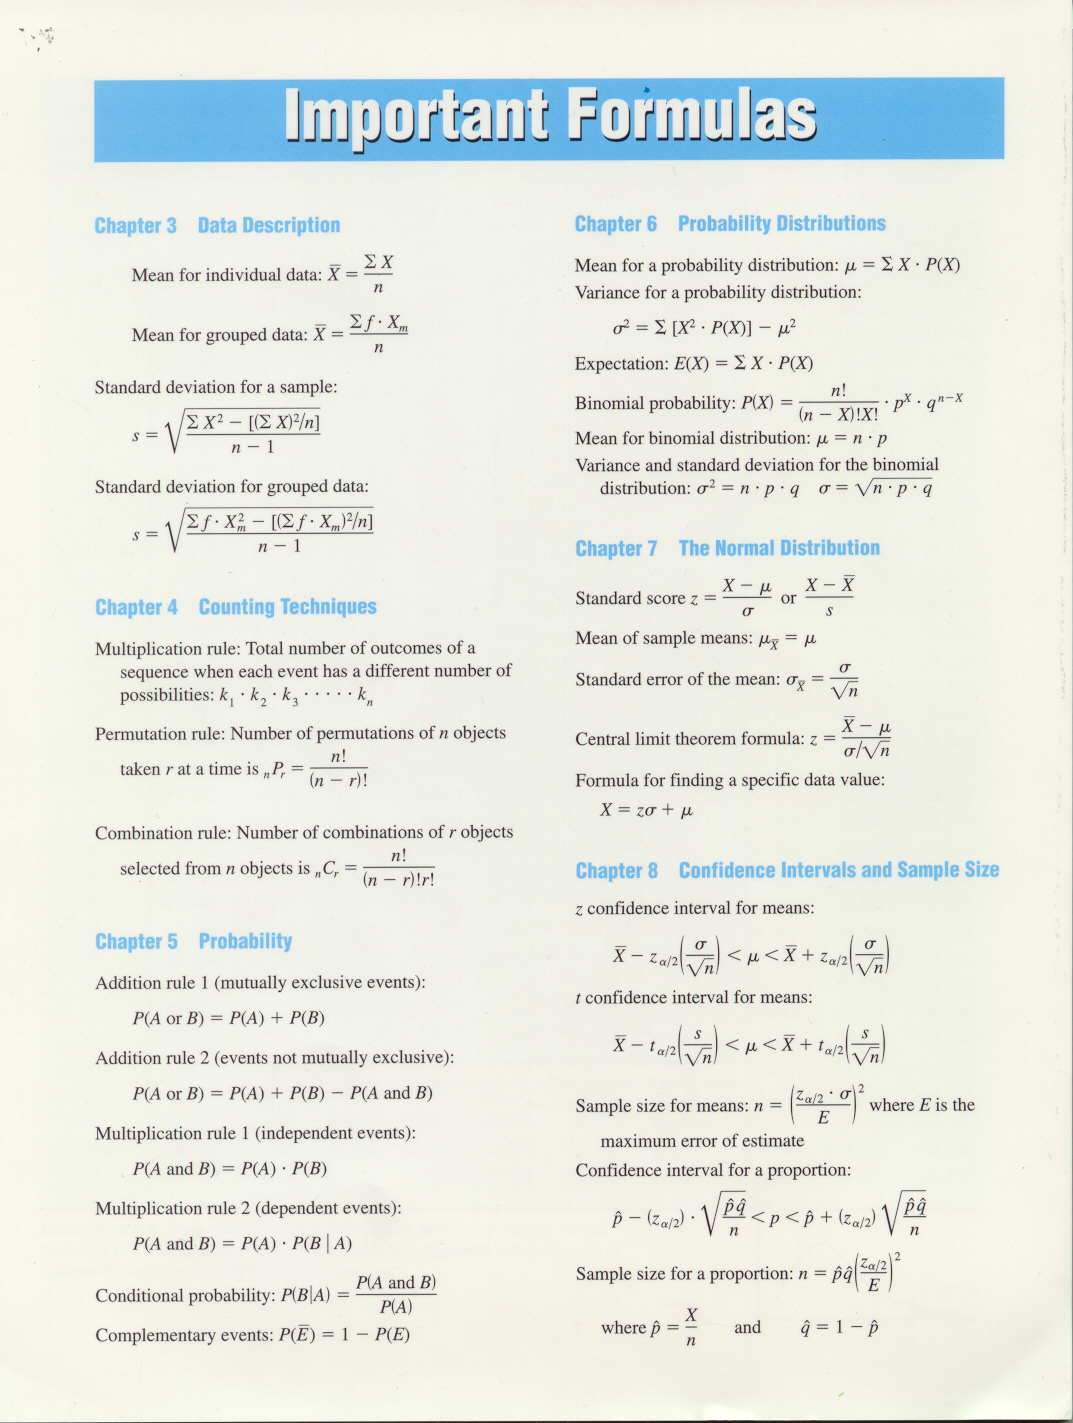 Important Formulas
Chapter 3 Data Description
Mean for individual data: X̄ = ΣX / n
Mean for grouped data: X̄ = Σf · Xₘ / n
Standard deviation for a sample:
s = √(ΣX² − [(ΣX)²/n] / n − 1)
Standard deviation for grouped data:
s = √(Σf · X²ₘ − [(Σf · Xₘ)²/n] / n − 1)
Chapter 4 Counting Techniques
Multiplication rule: Total number of outcomes of a
sequence when each event has a different number of
possibilities: k₁ · k₂ · k₃ · · · · · kₙ
Permutation rule: Number of permutations of n objects
taken r at a time is ₙPᵣ = n! / (n − r)!
Combination rule: Number of combinations of r objects
selected from n objects is ₙCᵣ = n! / (n − r)!r!
Chapter 5 Probability
Addition rule 1 (mutually exclusive events):
P(A or B) = P(A) + P(B)
Addition rule 2 (events not mutually exclusive):
P(A or B) = P(A) + P(B) − P(A and B)
Multiplication rule 1 (independent events):
P(A and B) = P(A) · P(B)
Multiplication rule 2 (dependent events):
P(A and B) = P(A) · P(B | A)
Conditional probability: P(B|A) = P(A and B) / P(A)
Complementary events: P(Ē) = 1 − P(E)
Chapter 6 Probability Distributions
Mean for a probability distribution: μ = Σ X · P(X)
Variance for a probability distribution:
σ² = Σ [X² · P(X)] − μ²
Expectation: E(X) = Σ X · P(X)
Binomial probability: P(X) = n! / (n − X)!X! · p^X · q^(n−X)
Mean for binomial distribution: μ = n · p
Variance and standard deviation for the binomial
distribution: σ² = n · p · q σ = √(n · p · q)
Chapter 7 The Normal Distribution
Standard score z = X − μ / σ or X − X̄ / s
Mean of sample means: μ_X̄ = μ
Standard error of the mean: σ_X̄ = σ / √n
Central limit theorem formula: z = X̄ − μ / σ/√n
Formula for finding a specific data value:
X = zσ + μ
Chapter 8 Confidence Intervals and Sample Size
z confidence interval for means:
X̄ − z_α/2(σ/√n) < μ < X̄ + z_α/2(σ/√n)
t confidence interval for means:
X̄ − t_α/2(s/√n) < μ < X̄ + t_α/2(s/√n)
Sample size for means: n = (z_α/2 · σ / E)² where E is the
maximum error of estimate
Confidence interval for a proportion:
p̂ − (z_α/2) · √(p̂q̂/n) < p < p̂ + (z_α/2) √(p̂q̂/n)
Sample size for a proportion: n = p̂q̂(z_α/2 / E)²
where p̂ = X / n and q̂ = 1 − p̂